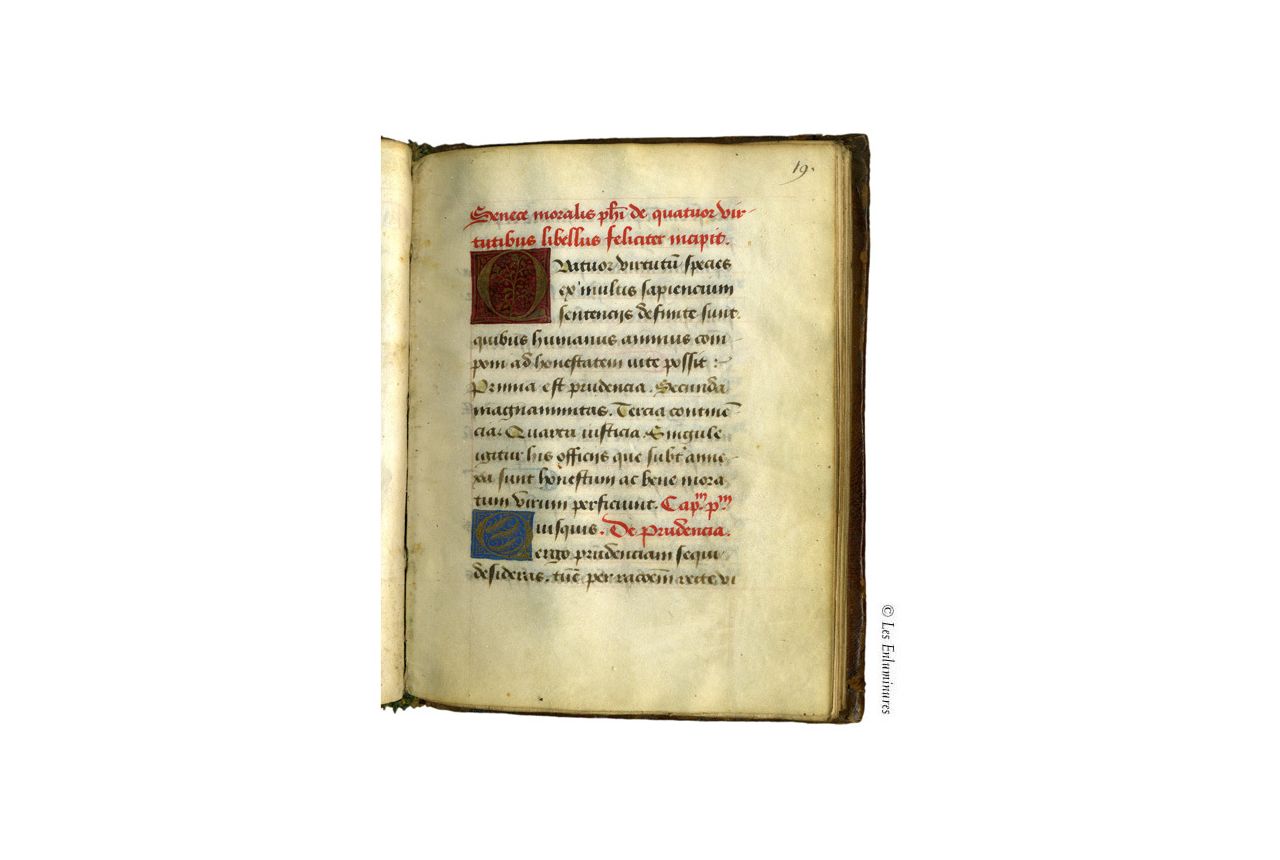 19.
Senece moralis phī de quatuor vir-
tutibus libellus feliciter incipit.
Quatuor virtutū species
ex multis sapiencium
sentencijs definite sunt.
quibus humanus animus com
poni ad honestatem vite possit :
Prima est prudencia. Secunda
magnanimitas. Tercia continē
cia. Quarta iusticia. Singule
igitur his officijs que subt' anne
xa sunt honestum ac bene mora
tum virum perficiunt. Cap.m p.m
Quisquis. De Prudencia.
ergo prudenciam sequi
desideras. tūc per racōem recte vi
© Les Enluminures